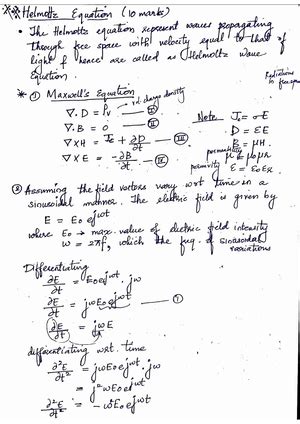 ** Helmoltz Equation (10 marks)
• The Helmoltz equation represent waves propagating
through free space with velocity equal to that of
light & hence are called as Helmoltz wave
equation.
* ① Maxwell's Equation
∇.D = ρv → vol charge density — Ⓘ
∇.B = 0 — Ⓘ Ⓘ
∇×H = Jc + ∂D/∂t — ⒾⒾⒾ
∇×E = -∂B/∂t — ⒾⓋ
Note J = σE
D = εE
B = μH.
permeability μ = μ0μr
permitivity ε = ε0εr
② Assuming the field vectors vary wrt time in a
sinusoidal manner. The electric field is given by
E = E0 e^jωt
where E0 → max. value of electric field intensity
ω = 2πf, which the freq. of sinusoidal
variations
Differentiating
∂E/∂t = E0 e^jωt . jω
∂E/∂t = jωE0 e^jωt — ①
∂E/∂t = jωE
differentiating wrt. time
∂²E/∂t² = jωE0 e^jωt . jω
= j²ω²E0 e^jωt
∂²E/∂t² = -ω²E0 e^jωt